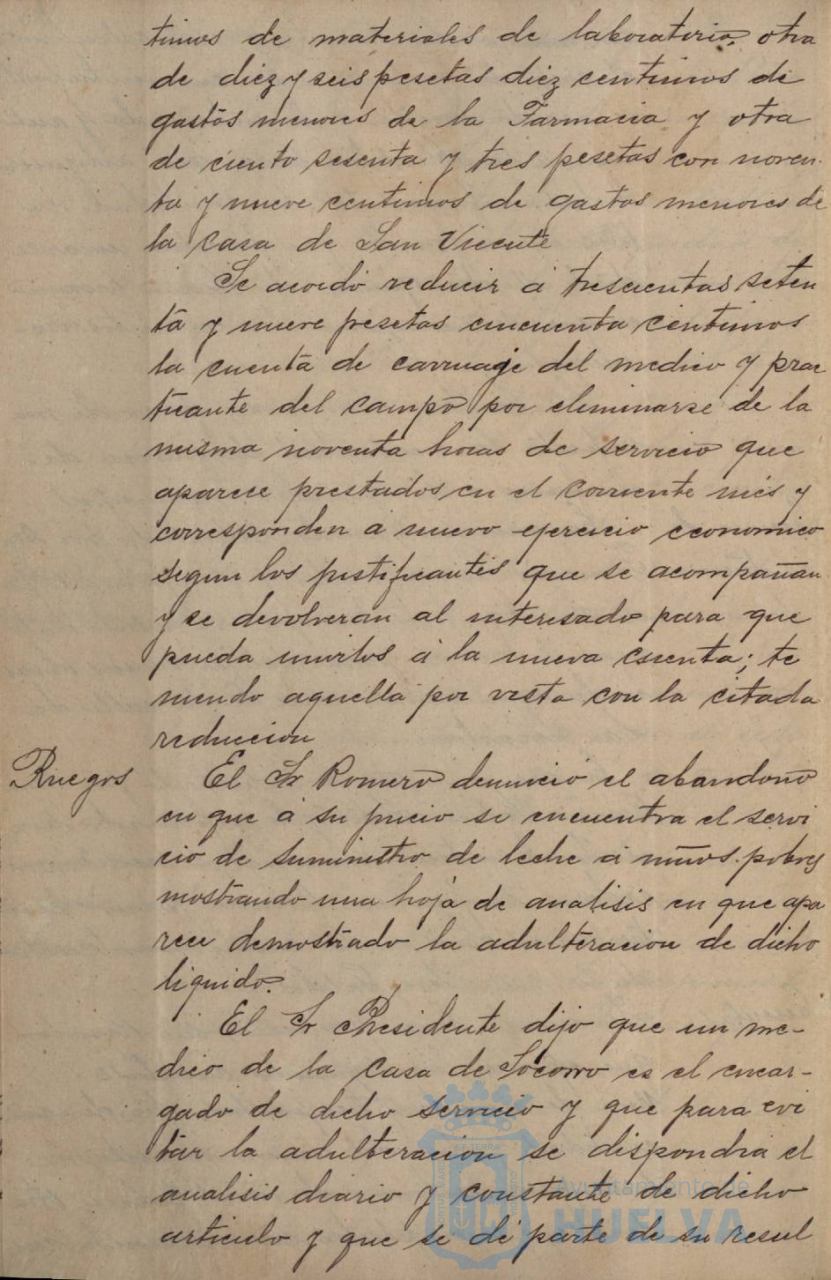 timos de materiales de laboratorio, otra
de diez y seis pesetas diez centimos de
gastos menores de la Farmacia y otra
de ciento sesenta y tres pesetas con noven-
ta y nueve centimos de gastos menores de
la casa de San Vicente
Se acordó reducir á trescientas seten
ta y nueve pesetas cincuenta centimos
la cuenta de carruage del medico y prac
ticante del campo por eliminarse de la
misma noventa horas de servicio que
aparece prestados en el corriente més y
corresponden á nuevo ejercicio economico
segun los justificantes que se acompañan
y se devolveran al interesado para que
pueda unirlos á la nueva cuenta; te
niendo aquella por vista con la citada
reduccion
Ruegos
El Sr Romero denunció el abandono
en que á su juicio se encuentra el servi
cio de suministro de leche á niños pobres
mostrando una hoja de analisis en que apa
rece demostrado la adulteracion de dicho
liquido.
El Sr Presidente dijo que un me-
dico de la Casa de Socorro es el encar-
gado de dicho servicio y que para evi
tar la adulteracion se dispondra el
analisis diario y constante de dicho
articulo y que se dé parte de su resul
Ayuntamiento de
HUELVA